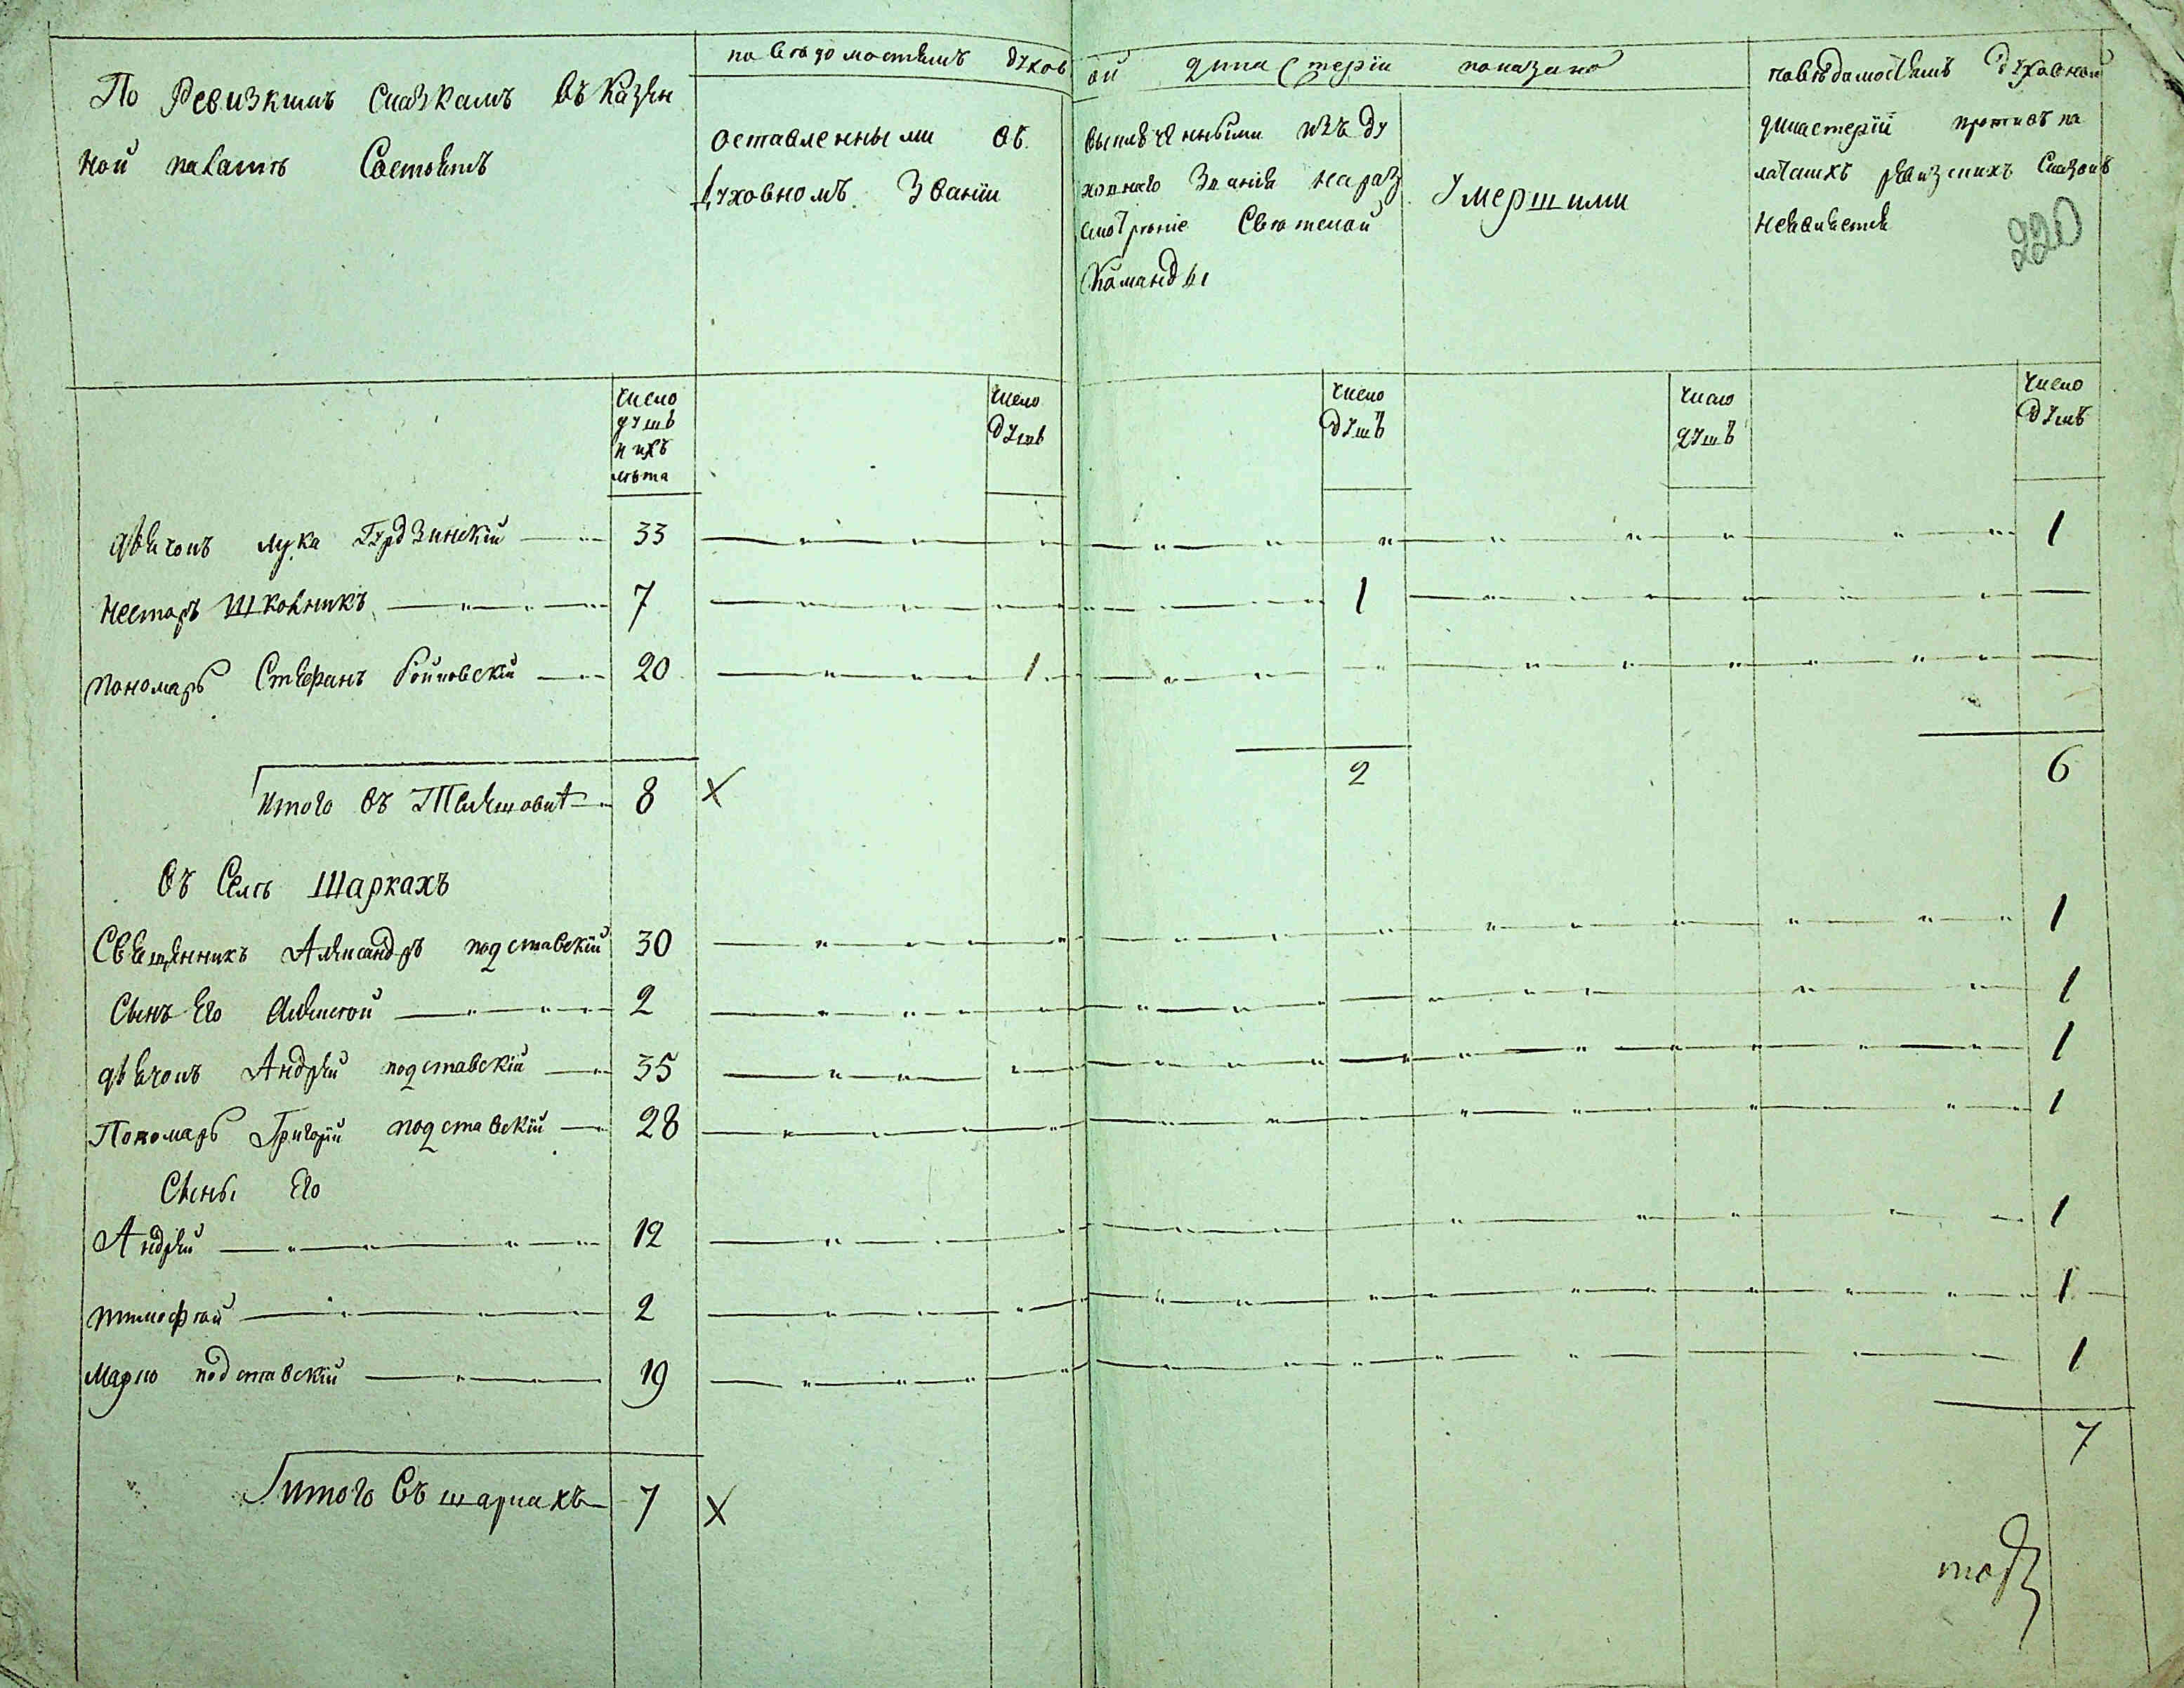 По Ревизкимъ Сказкамъ Въ Казен
ной палатѣ Состоитъ
по вѣдомостямъ духов
ой дикастерїи показано
оставленными въ
духовномъ Званїи
выключенными изъ ду
ховнаго Званія на раз
смотрѣніе Свѣтской
Команды
Умершими
по вѣдамостямъ духовной
дикастерїи противъ па
латскихъ ревизкихъ Сказокъ
неявляется
220
число
душъ
и ихъ
лѣта
число
душъ
число
душъ
число
душъ
число
душъ
дьячокъ лука Гурдзинскїй 33 1
несторъ школникъ 7 1
пономарь Стефанъ 20 1
итого въ 8 X 2 6
Въ Селѣ Шаркахъ
Священникъ Александръ подставскїй 30 1
Сынъ Его Алексѣй 2 1
дьячокъ Андрей подставскїй 35 1
Пономарь Григорїй подставскїй 28 1
Сыны Его
Андрей 12 1
тимофѣй 2 1
Марко подставскїй 19 1
7
итого Въ шаркахъ 7 X